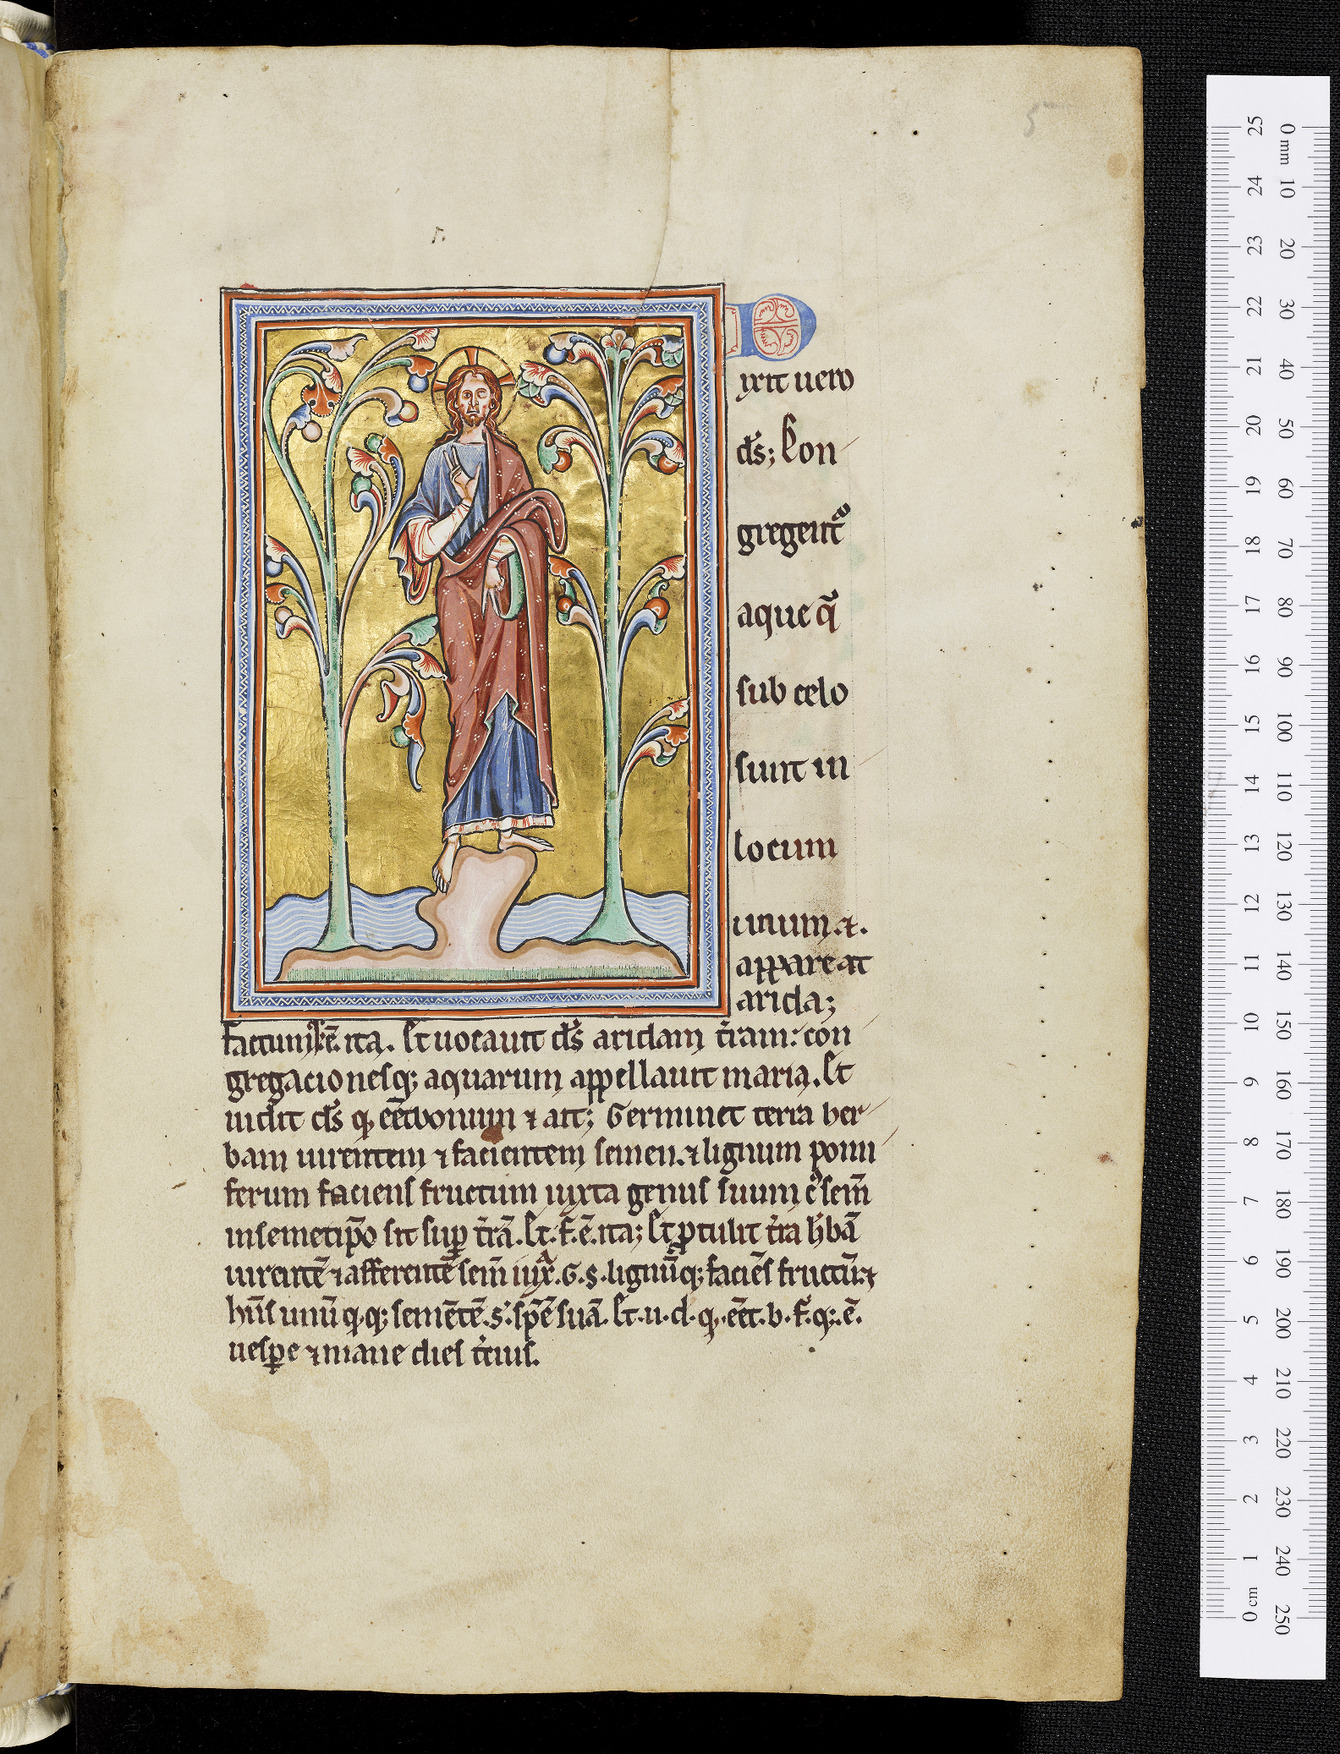 5
D
ixit uero
ds̄; Con
gregent᷑
aque q̄
sub celo
sunt in
locum
unum ⁊.
appareat
arida;
factumq; ē. ita. Et uocauit ds̄ aridam t̄ram: con
gregacionesq; aquarum appellauit maria. Et
uidit ds̄ q, eēt bonum ⁊ ait; Germinet terra her
bam uirentem ⁊ facientem semen. ⁊ lignum pomi
ferum faciens fructum iuxta genus suum c᷑ sem̄
in semetip̄o sit sup̱ t̄rā. Et. f. ē. ita; Et ꝓtulit t̄ra h̄bā
uirentē ⁊ afferentē sem̄ iux̄. G. s. lignūq; faciēs fructū. ⁊
hn̄s unū q,q; semētē. s. sp̄ē suā. Et. u. d. q,. eēt. b. f. q;. ē.
uesp̱e ⁊ mane dies t̄cius.
25 24 23 22 21 20 19 18 17 16 15 14 13 12 11 10 9 8 7 6 5 4 3 2 1 cm 0
0 mm 10 20 30 40 50 60 70 80 90 100 110 120 130 140 150 160 170 180 190 200 210 220 230 240 250